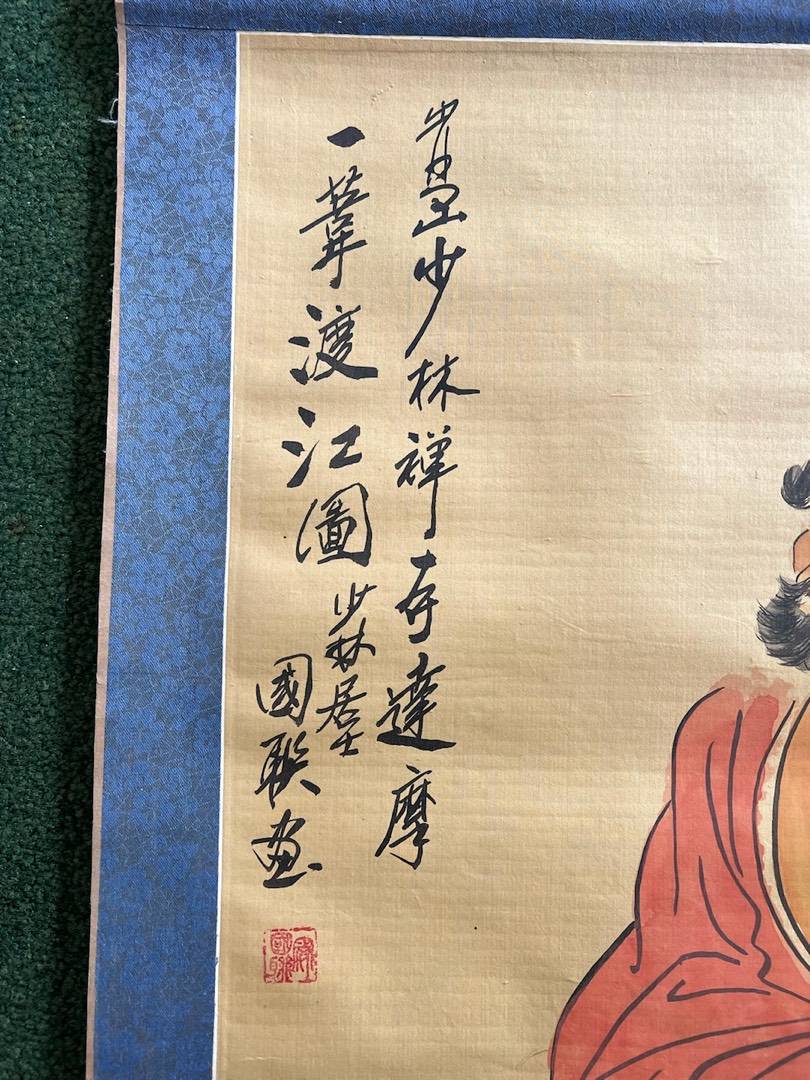 嵩山少林禅寺達摩
一葦渡江圖
少林居士
國联画